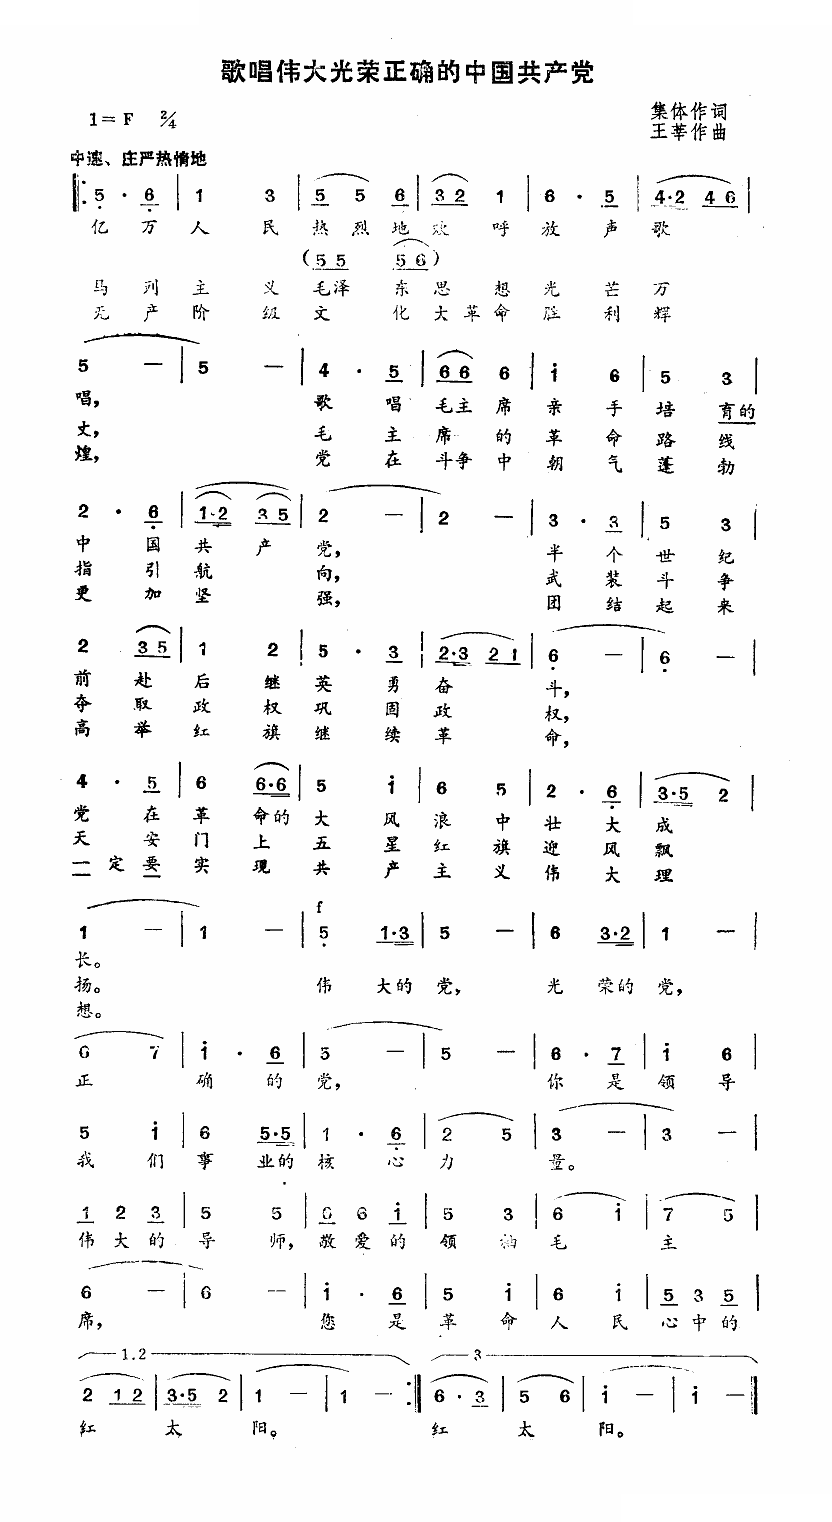 歌唱伟大光荣正确的中国共产党
1= F 2/4
集体作词
王莘作曲
中速、庄严热情地
5 · 6 | 1 3 | 5 5 6 | 3 2 1 | 6 · 5 | 4·2 4 6 |
亿万人民热烈地欢呼放声歌
(5 5 5 6)
马列主义毛泽东思想光芒万
无产阶级文化大革命胜利辉
5 — | 5 — | 4 · 5 | 6 6 6 | i 6 | 5 3 |
唱, 歌唱毛主席亲手培育的
丈, 毛主席的革命路线
煌, 党在斗争中朝气蓬勃
2 · 6 | 1·2 3 5 | 2 — | 2 — | 3 · 3 | 5 3
中国共产党, 半个世纪
指引航向, 武装斗争
更加坚强, 团结起来
2 3 5 | 1 2 | 5 · 3 | 2·3 2 1 | 6 — | 6 — |
前赴后继英勇奋斗,
夺取政权巩固政权,
高举红旗继续革命,
4 · 5 | 6 6·6 | 5 i | 6 5 | 2 · 6 | 3·5 2 |
党在革命的大风浪中壮大成
天安门上五星红旗迎风飘
一定要实现共产主义伟大理
1 — | 1 — | f 5 1·3 | 5 — | 6 3·2 | 1 — |
长。
扬。 伟大的党, 光荣的党,
想。
6 7 | i · 6 | 5 — | 5 — | 6 · 7 | i 6
正确的党, 你是领导
5 i | 6 5·5 | 1 · 6 | 2 5 | 3 — | 3 — |
我们事业的核心力量。
1 2 3 | 5 5 | 6 6 i | 5 3 | 6 i | 7 5 |
伟大的导师, 敬爱的领袖毛主
6 — | 6 — | i · 6 | 5 i | 6 i | 5 3 5 |
席, 您是革命人民心中的
1.2 3
2 1 2 | 3·5 2 | 1 — | 1 — :| 6 · 3 | 5 6 | i — | i — ‖
红太阳。 红太阳。